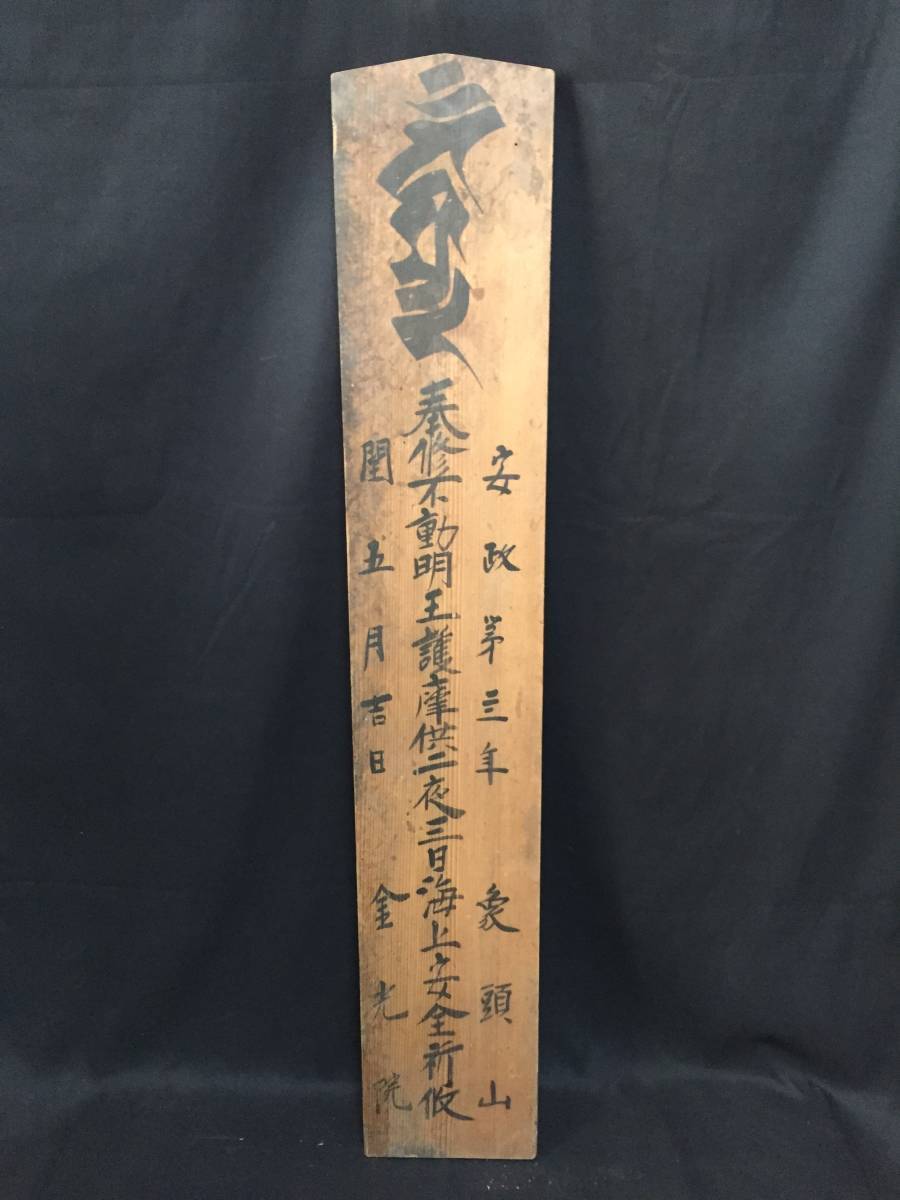 安政第三年 象頭山
奉修不動明王護摩供二夜三日海上安全祈攸
閏五月吉日 金光院